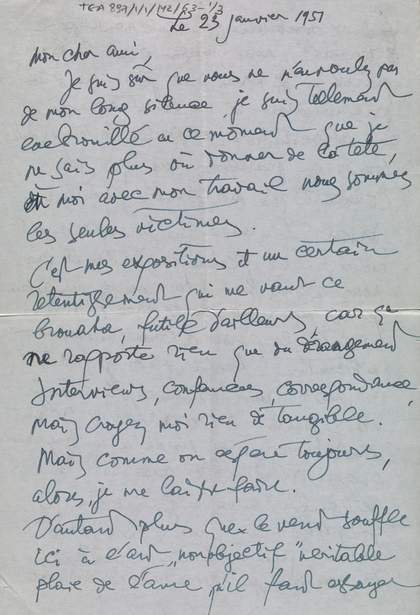 TGA 897/1/1/142/63-1/3
Le 23 janvier 1951
Mon cher ami
Je suis sûr que vous ne m'en voulez pas
de mon long silence, je suis tellement
embrouillé en ce moment que je
ne sais plus où donner de la tête,
moi avec mon travail nous sommes
les seules victimes.
C'est mes expositions et un certain
retentissement qui me vaut ce
brouaha, futile d'ailleurs, car ça
ne rapporte rien que du dérangement
Interviews, conférences, correspondance,
Mais croyez moi rien de tangible.
Mais comme on espère toujours,
alors, je me laisse faire.
D'autant plus que le vent souffle
ici à l'art "nonobjectif" véritable
plaie de l'âme qu'il faut essayer